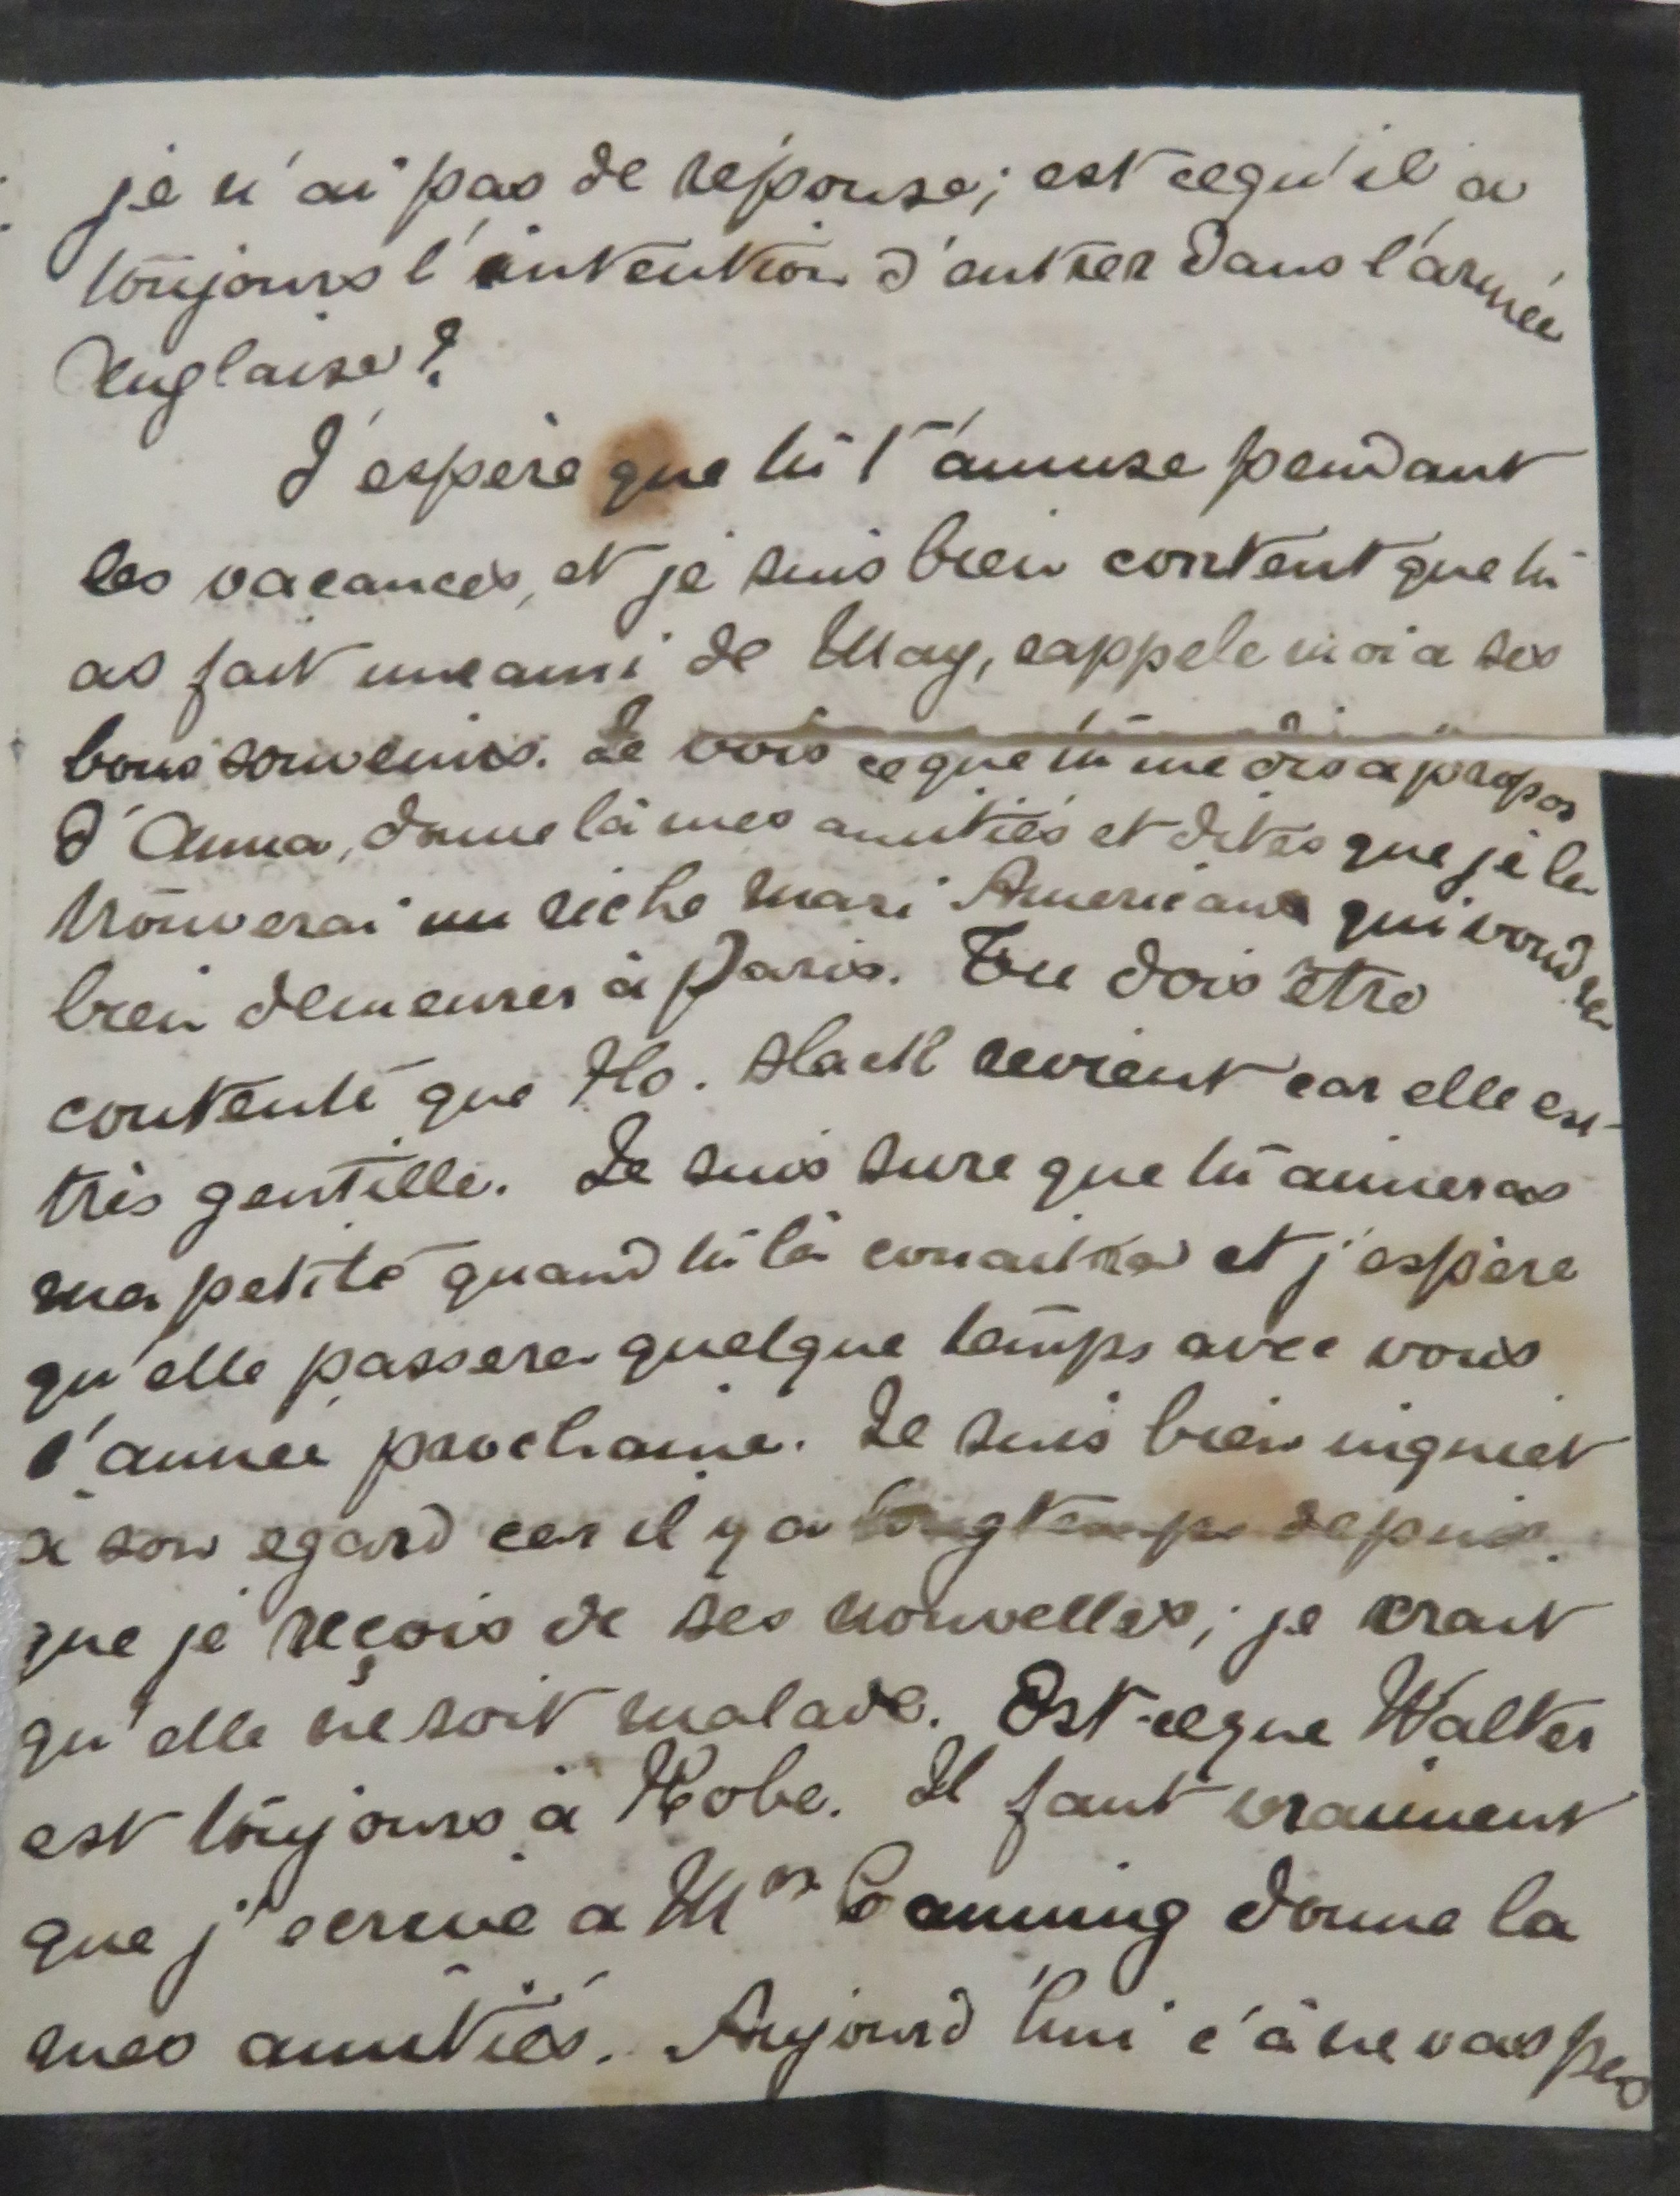 je n'ai pas de réponse; est cequ'il a
toujours l'intention d'entrer dans l'armée
Anglaise?
J'espère que tu t'amuse pendant
les vacances, et je suis bien content que tu
as fait une ami de May, rappele moi a ses
bons souvenirs. Je vois ce que tu me dis a propos
d'Anna, donne là mes amitiés et dites que je la
trouverai un riche mari Americain qui voudra
bien demeurer à Paris. Tu dois être
contente que Flo. Slack revient car elle est
très gentille. Je suis sure que tu aimeras
ma petite quand tu là conaitra et j'espère
qu'elle passera quelque temps avec vous
l'année prochaine. Je suis bien inquiet
a son egard car il y a longtemps depuis
que je reçois de ses nouvelles; je crait
qu'elle ne soit malade. Est-ceque Walter
est toujours à Kobe. Il faut vraiment
que j'ecrive a Mrs Canning donne la
mes amitiés. Aujourd'hui c'à ne vas pas